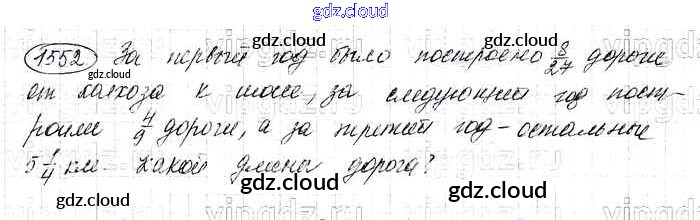 gdz.cloud
1552 За первый год было построено 8/27 дороги
gdz.cloud gdz.cloud
от колхоза к шоссе, за следующий год пост-
gdz.cloud
роили 4/9 дороги, а за третий год - остальные
gdz.cloud gdz.cloud
5 1/4 км. Какой длины дорога?
gdz.cloud
gdz.cloud